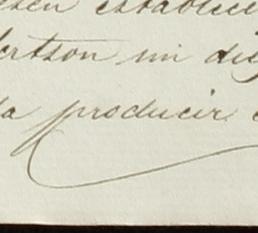 establec
ertson mi di
da producir